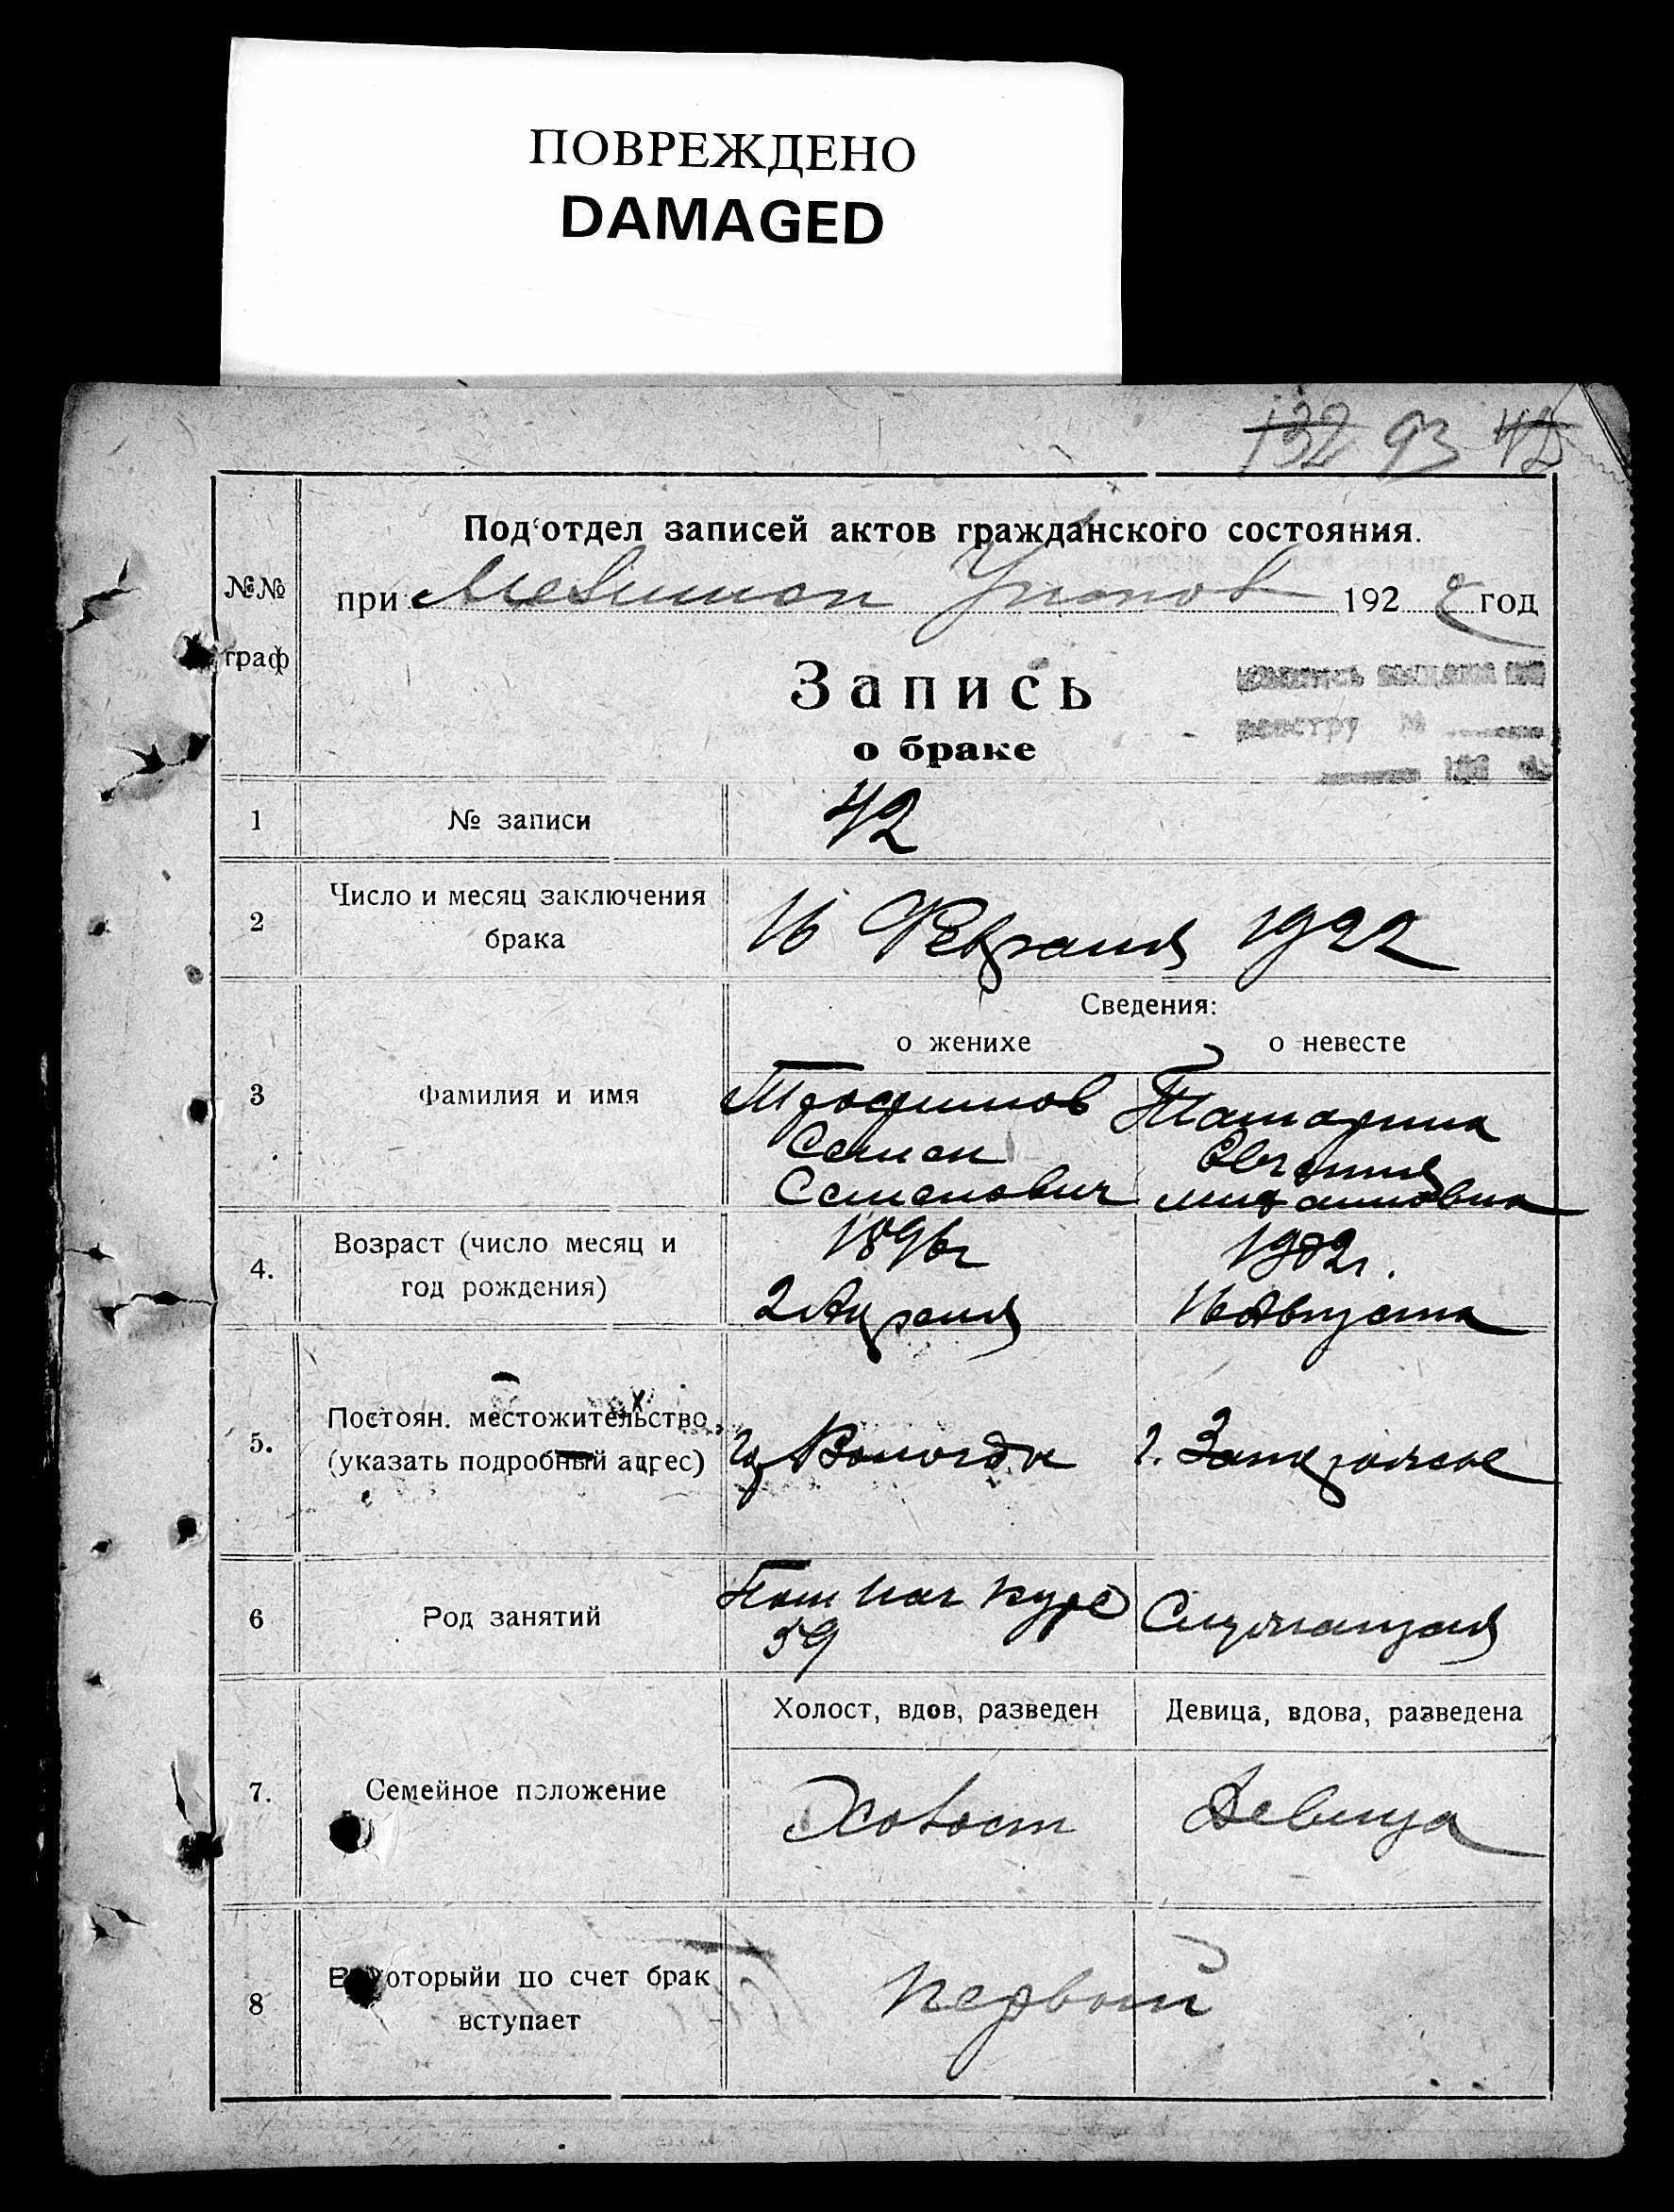 ПОВРЕЖДЕНО
DAMAGED
132 93 42
Под'отдел записей актов гражданского состояния.
№№
граф
при 192 2 год
Запись
о браке
реестру №
1 № записи 42
2 Число и месяц заключения
брака
16 Февраля 1922
Сведения:
о женихе о невесте
3 Фамилия и имя
Трофимов
Семен
Семенович
Татарина
Евгения
4. Возраст (число месяц и
год рождения)
1896г
2 Апреля
1902г.
16 Августа
5. Постоян. местожительство
(указать подробный адрес)
Вологда
г. Запорожье
6 Род занятий
Пом Нач Курс
59
Служащая
Холост, вдов, разведен Девица, вдова, разведена
7. Семейное положение
Холост Девица
8 который и по счет брак
вступает
первый